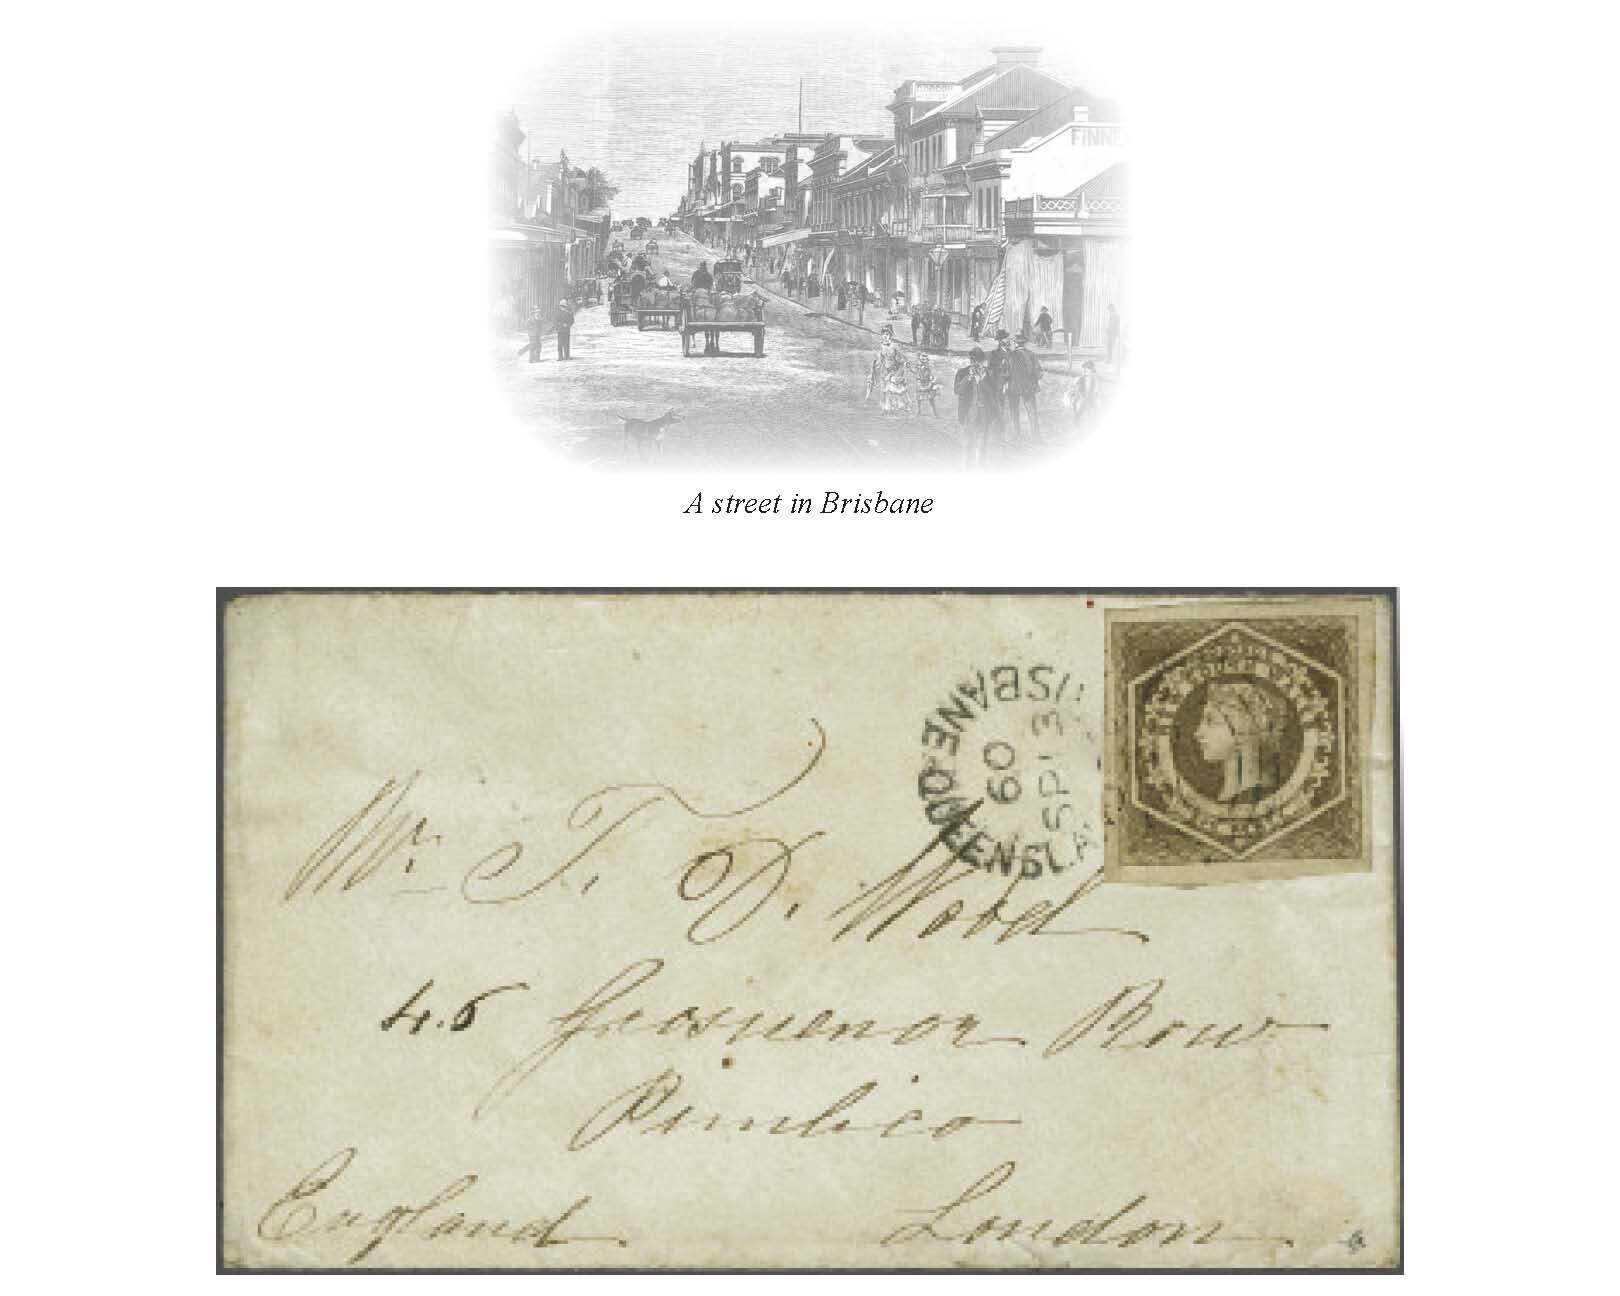 FINNE
A street in Brisbane
BRISBANE QUEENSLA
60
SP 13
Mr. T. D. Wood
46 Grosvenor Row
Pimlico
England London